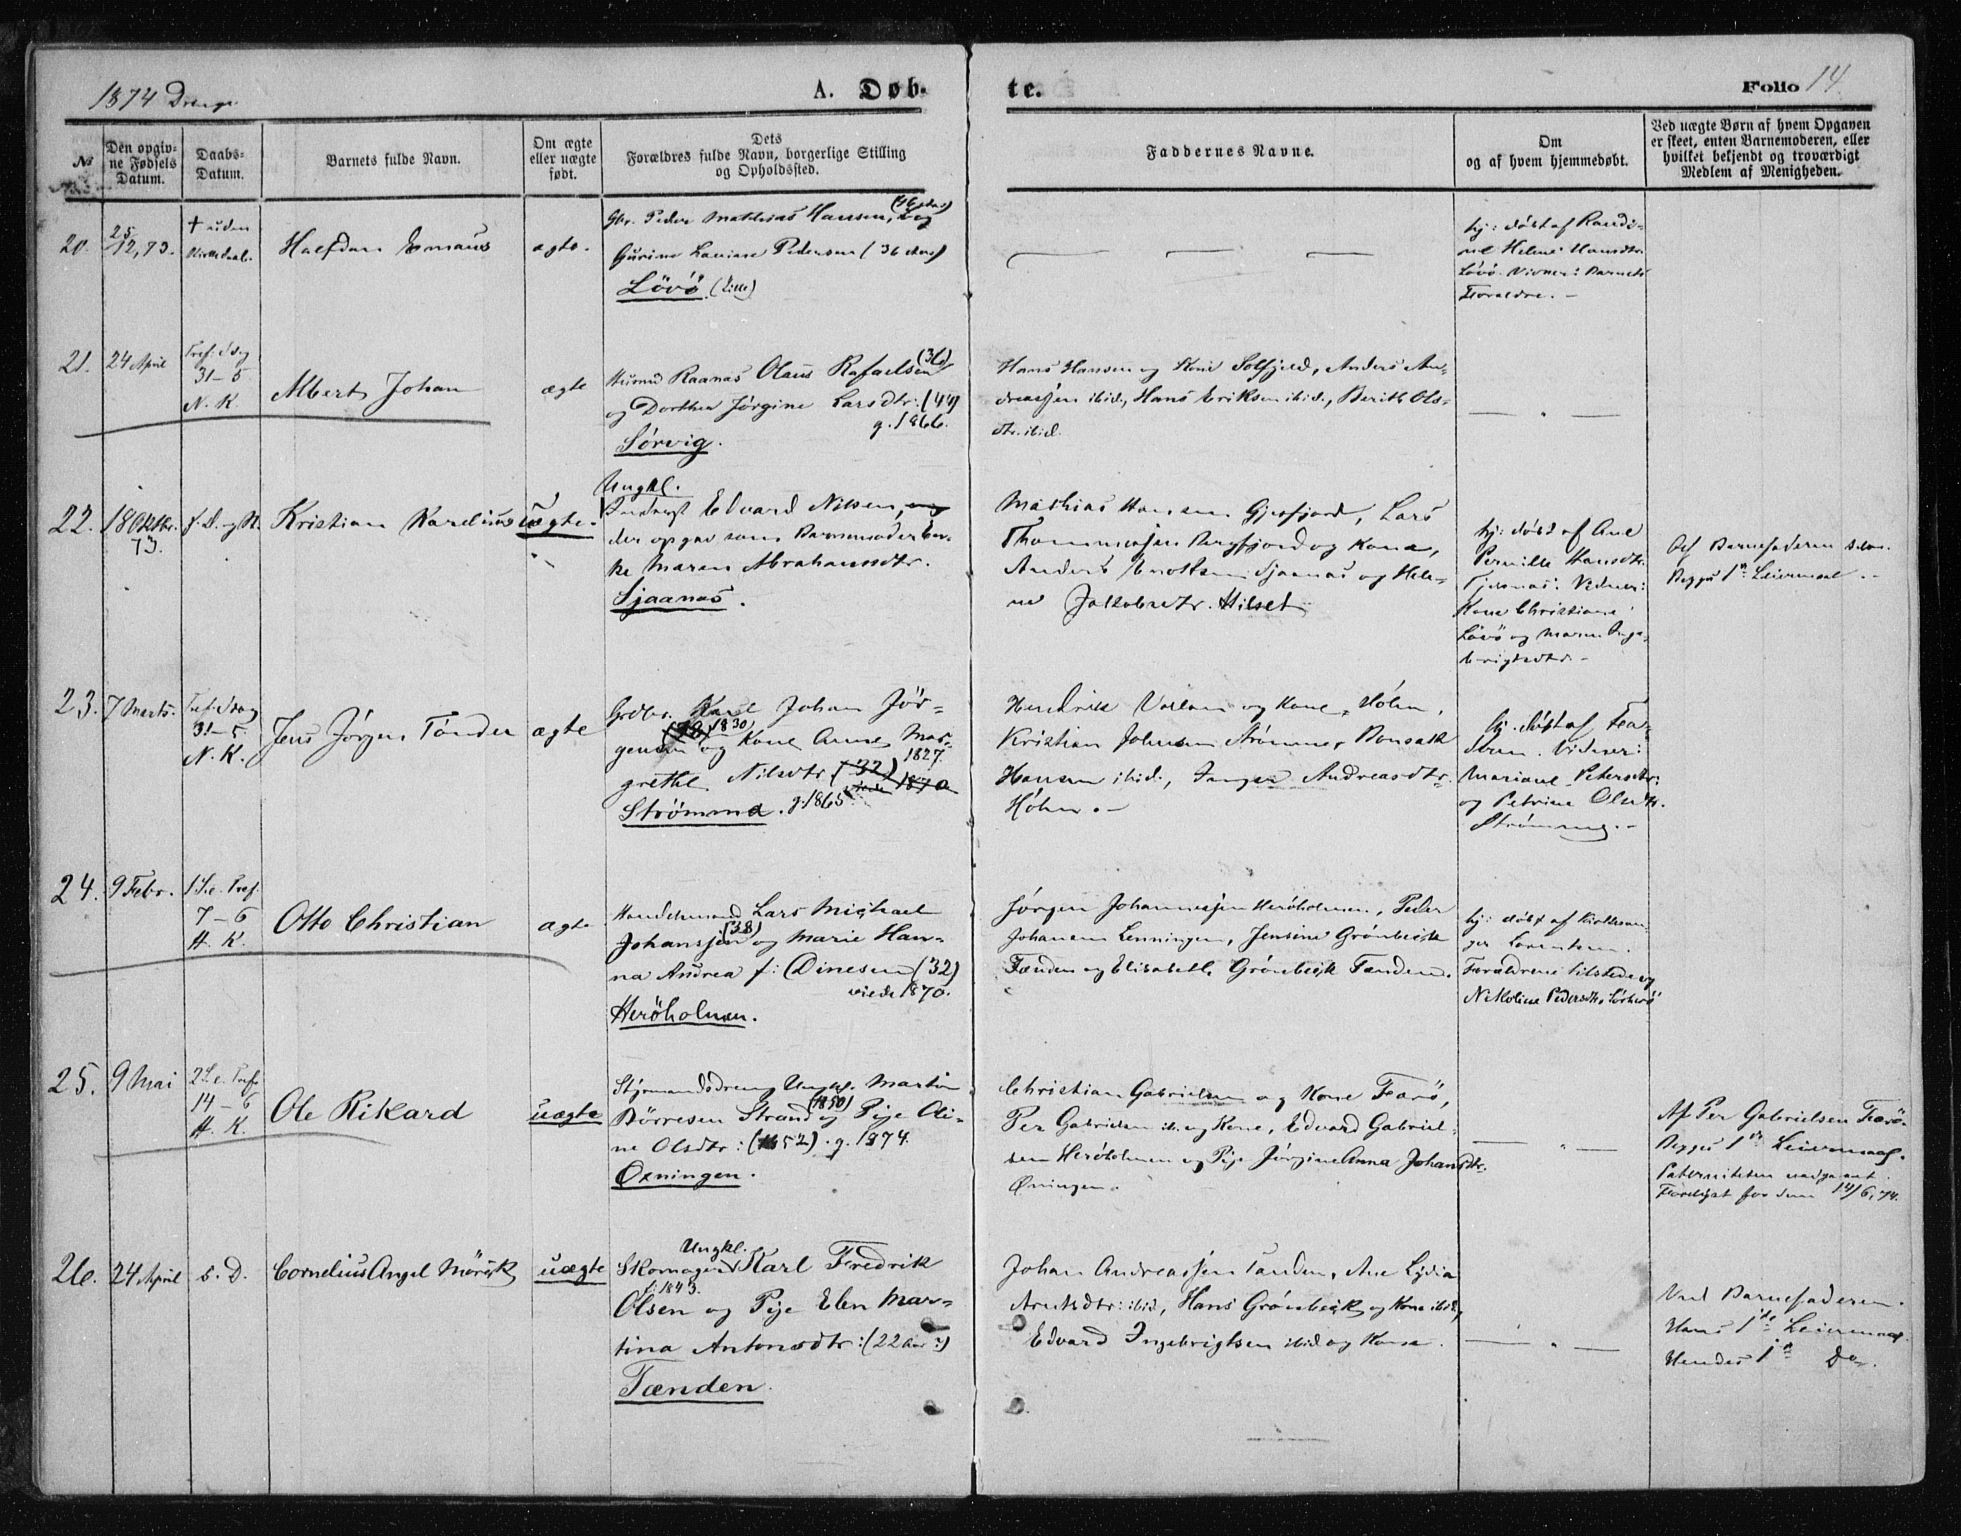 1874 Drenge
A. Døb-
te.
Folio 14.
No
Den opgiv-
ne Fødsels
Datum.
Daabs-
Datum.
Barnets fulde Navn.
Om ægte
eller uægte
født.
Dets
Forældres fulde Navn, borgerlige Stilling
og Opholdssted.
Faddernes Navne.
Om
og af hvem hjemmedøbt.
Ved uægte Børn af hvem Opgaven
er skeet, enten Barnemoderen, eller
hvilket bekjendt og troværdigt
Medlem af Menigheden.
20.
25/12, 73.
† uden
Kirkedaab.
Halfdan Emaus
ægte.
Gbr. Peder Mathias Hansen, og
Gurine Laurine Pedersen (36 Aar)
Lövö (Lille)
hj: døbt af Randi-
ne Helene Hansdtr.
Lövö. Vidner: Barnets
Forældre. -
21.
24 April
31-5
N. K.
Albert Johan
ægte
Husmd Raanæs Olaus Rafaelsen (36)
og Dorthea Jørgine Larsdtr: (44)
g. 1866.
Sörvig.
Hans Hansen og Kone Solfjeld, Anders An-
dreasen ibid., Hans Eriksen ibid., Berith Ols-
dtr. ibid.
22.
18 Oktbr.
73.
s. D. og K.
Kristian Karelius
uægte.
Ungkl.
Inderst Edvard Nilsen, og
der opgav som Barnemoder En-
ke Maren Abrahamsdtr.
Sjaanæs.
Mathias Hansen Gjesfjord, Lars
Thommesen Bergfjord og Kone,
Anders Enoksen Sjaanæs og Hele-
ne Jakobsdtr. Hilset
hj: døbt af Ane
Pernille Hansdtr.
Vidner:
Kone Christiane
Lövö og Maren Inge-
brigtsdtr. -
Af Barnefaderen selv.
Begges 1ste Leiermaal. -
23.
7 Marts.
31-5
N. K.
Jens Jörgen Tönder
ægte
Grdbr. Karl Johan Jör-
gensen (38) 1830 og Kone Anne Mar-
1827.
grethe Nilsdtr (32)
viede 1870
Strömmen. g. 1865
Hendrik Carlsen og Kone, Holm,
Kristian Johnsen Strömmer, Bonsak
Hansen ibid., Inger Andreasdtr.
Holm. -
hj. døbt af Fa-
deren. Vidner:
Mariane Petersdtr:
og Petrine Olsdtr.
Strömmen. -
24.
9 Febr.
1 S. e. Tref.
7-6
H. K.
Otto Christian
ægte
Handelsmand Lars Michael
Johanssen (38) og Marie Han-
na Andrea f: Dinesen (32)
viede 1870.
Heröholmen.
Jörgen Johannessen Heröholmen, Peder
Johansen Lenningen, Jensine Grönbeck
Tænden og Elisabeth Grönbeck Tænden.
hj: døbt af Kirkesan-
ger Lorentsen.
Forældrene tilstede og
Nikoline Pedersdtr. Sörherö
25.
9 Mai
2 S. e. Tref.
14-6
H. K.
Ole Rikard
uægte
Styrmandsdreng Ungkl. Martin
Börresen Strand (1850) og Pige Oli-
ne Olsdtr: (1852). g. 1874.
Oxningen.
Christian Gabrielsen og Kone Færö,
Per Gabrielsen ib. og Kone, Edvard Gabriel-
sen Heröholmen og Pige Jörgine Anna Johansdtr.
Öxningen.
Af Per Gabrielsen Færö.
Begges 1ste Leiermaal.
Paterniteten vedgaaet.
Forelagt for dem 14/6, 74.
26.
24 April
s. D.
Cornelius Angel Mörck
uægte
Ungkl.
Skomager Karl Fredrik
f: 1843.
Olsen og Pige Elen Mar-
tina Antonsdtr: (22 Aar:)
Tænden.
Johan Andreassen Tænden, Ane Lydia
Arntsdtr: ibid, Hans Grönbeck og Kone ibid,
Edvard Ingebrigtsen ibid og Kone.
Ved Barnefaderen.
Hans 1ste Leiermaal.
Hendes 1ste Do.